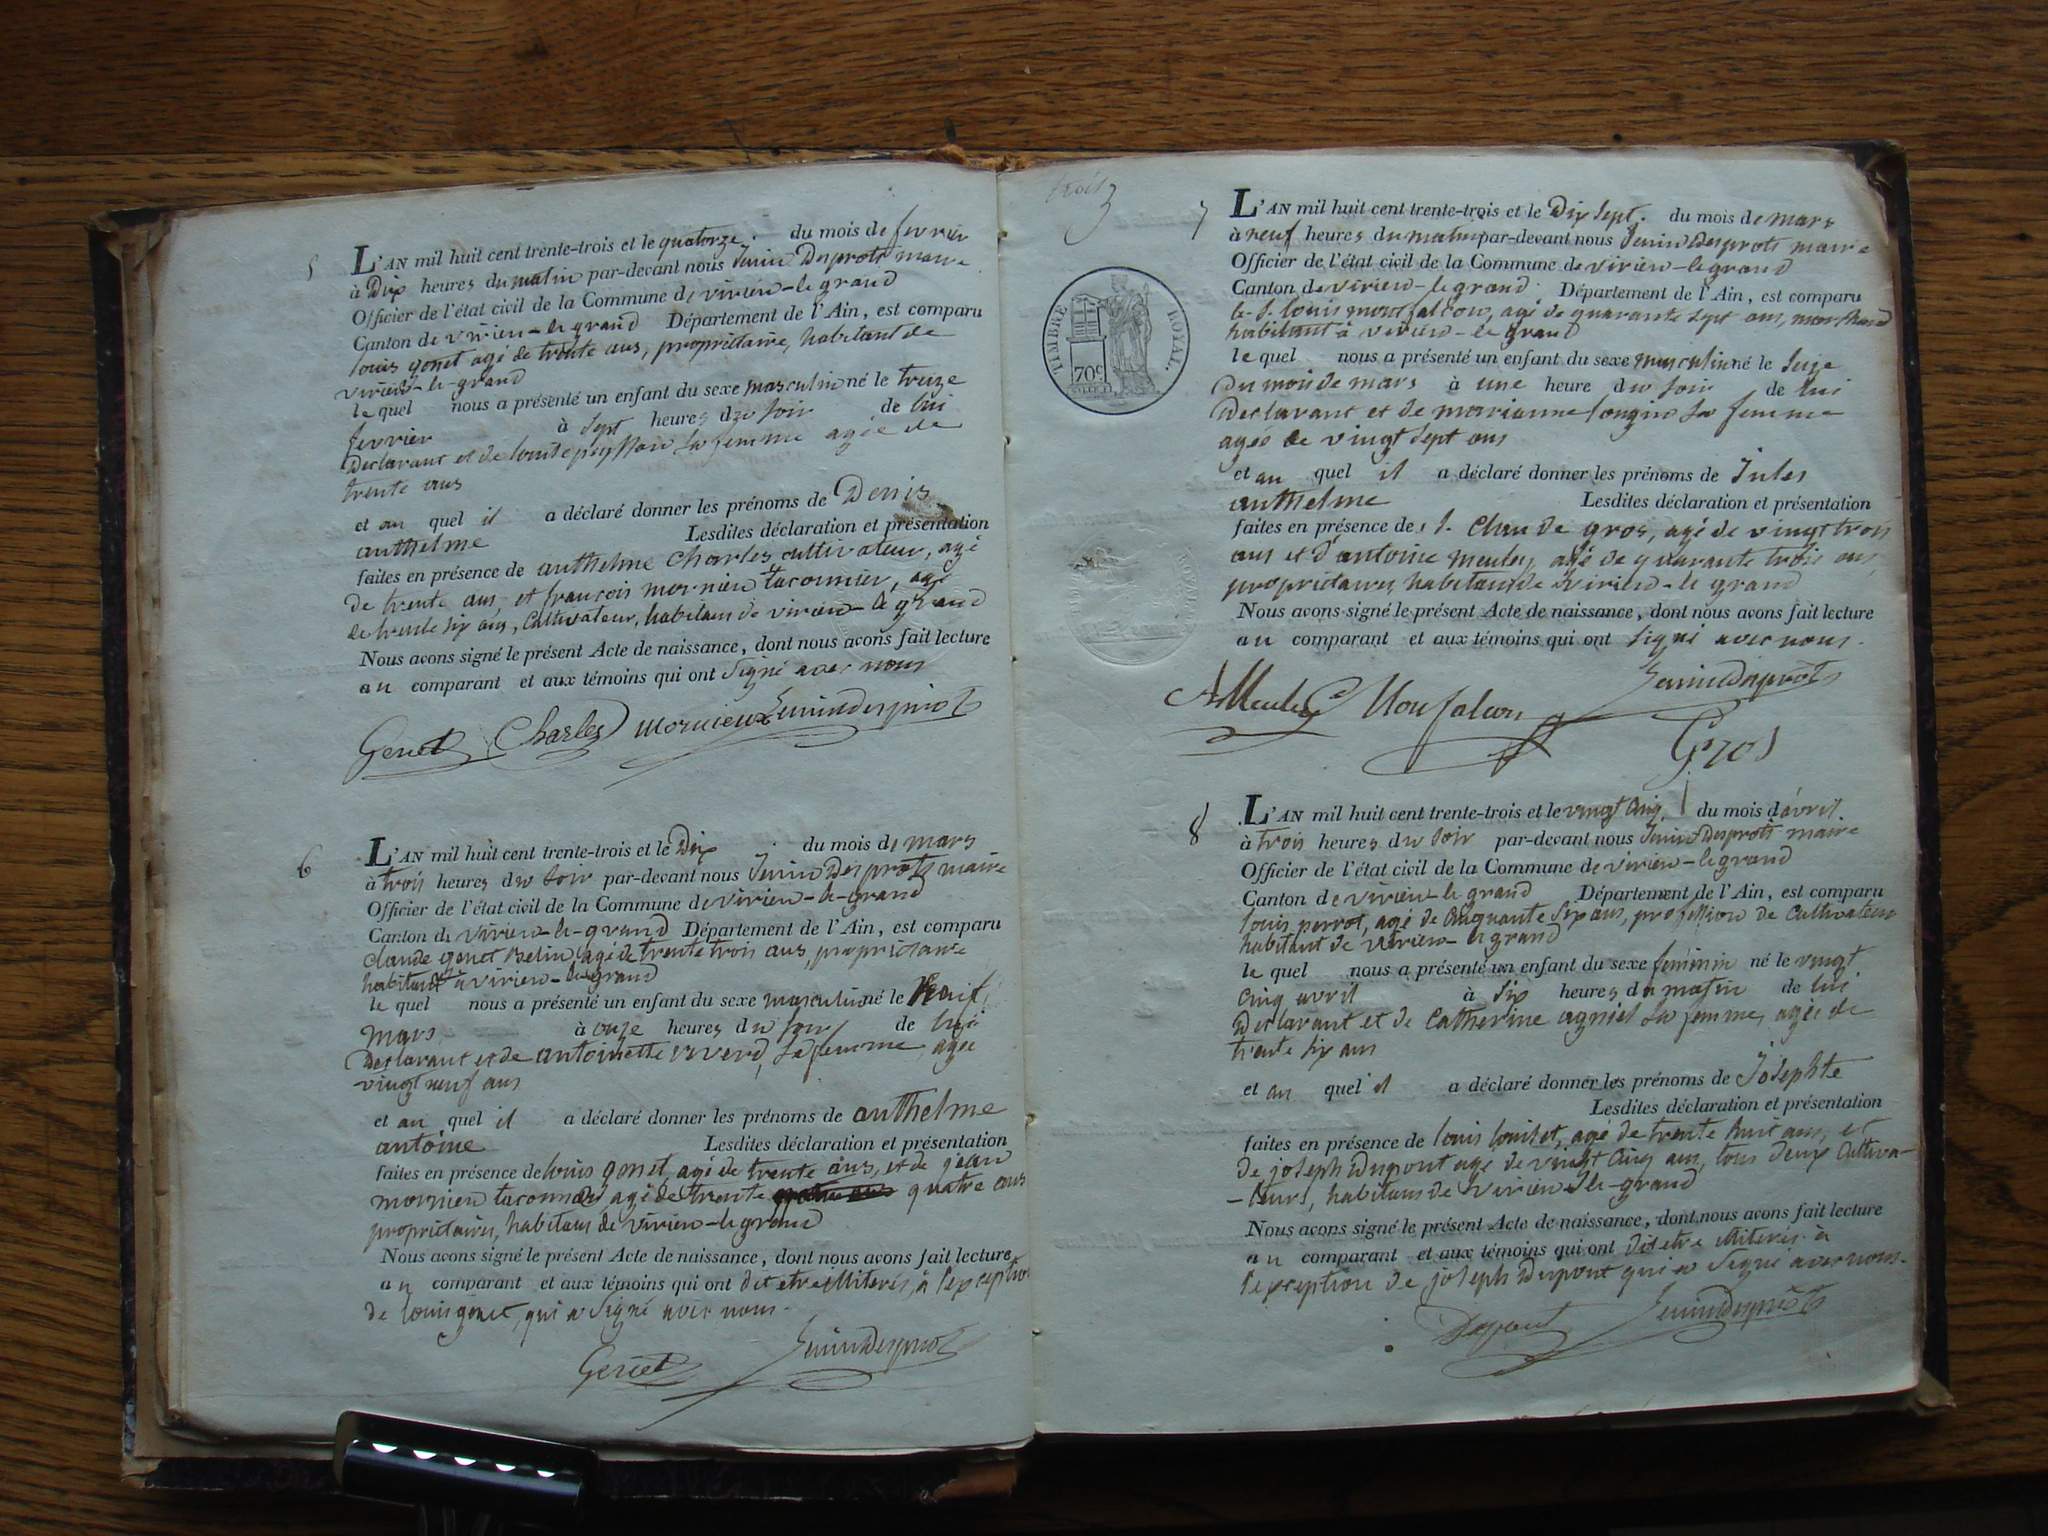 5
L'AN mil huit cent trente-trois et le quatorze du mois de fevrier
à Dix heures du matin par-devant nous Desprots maire
Officier de l'état civil de la Commune de virieu-le grand
Canton de virieu-le grand Département de l'Ain, est comparu
louis genet agé de trente ans, propriétaire, habitant de
virieu-le-grand
le quel nous a présenté un enfant du sexe masculin né le treize
fevrier à sept heures du soir de lui
Declarant et de sa femme agée de
trente ans
et au quel il a déclaré donner les prénoms de Denis
anthelme Lesdites déclaration et présentation
faites en présence de anthelme Charles cultivateur, agé
de trente ans, et francois mornieu taconnier, agé
de trente six ans, Cultivateur, habitans de virieu-le grand
Nous avons signé le présent Acte de naissance, dont nous avons fait lecture
au comparant et aux témoins qui ont signé avec nous
Genet Charles mornieux
6
L'AN mil huit cent trente-trois et le Dix du mois de mars
à trois heures du soir par-devant nous Desprots maire
Officier de l'état civil de la Commune de virieu-le-grand
Canton de virieu-le-grand Département de l'Ain, est comparu
claude genet Belin, agé de trente trois ans, propriétaire
habitant à virieu-le grand
le quel nous a présenté un enfant du sexe masculin né le Neuf
mars à onze heures du soir de lui
Declarant et de antoinette sa femme agée
vingt neuf ans
et au quel il a déclaré donner les prénoms de anthelme
antoine Lesdites déclaration et présentation
faites en présence de louis genet, agé de trente ans, et de jean
mornieu agé de trente quatre ans
propriétaires, habitans de virieu-le grand
Nous avons signé le présent Acte de naissance, dont nous avons fait lecture
au comparant et aux témoins qui ont dit etre illiterés, à l'exception
de louis genet, qui a signé avec nous.
Genet
trois 3
TIMBRE ROYAL
70c
7
L'AN mil huit cent trente-trois et le Dix sept du mois de mars
à neuf heures du matin par-devant nous Desprots maire
Officier de l'état civil de la Commune de virieu-le grand
Canton de virieu-le grand Département de l'Ain, est comparu
le s. louis montfalcon, agé de quarante sept ans, marchand
habitant à virieu-le grand
le quel nous a présenté un enfant du sexe masculin né le seize
du mois de mars à une heure du soir de lui
Declarant et de marianne sa femme
agée de vingt sept ans
et au quel il a déclaré donner les prénoms de Jules
anthelme Lesdites déclaration et présentation
faites en présence de s. Claude gros, agé de vingt trois
ans et d'antoine meuley, agé de quarante trois ans,
propriétaires, habitans de virieu-le grand
Nous avons signé le présent Acte de naissance, dont nous avons fait lecture
au comparant et aux témoins qui ont signé avec nous.
A Meuley Monfalcon
Gros
8
L'AN mil huit cent trente-trois et le vingt cinq du mois d'avril
à trois heures du soir par-devant nous Desprots maire
Officier de l'état civil de la Commune de virieu-le grand
Canton de virieu-le grand Département de l'Ain, est comparu
louis perrot, agé de cinquante six ans, profession de Cultivateur
habitant de virieu-le grand
le quel nous a présenté un enfant du sexe feminin né le vingt
cinq avril à six heures du matin de lui
Declarant et de Catherine agniel sa femme, agée de
trente six ans
et au quel il a déclaré donner les prénoms de Josephte
Lesdites déclaration et présentation
faites en présence de louis agé de trente huit ans, et
de joseph Dupont agé de vingt cinq ans, tous deux Cultiva-
-teurs, habitans de virieu-le-grand
Nous avons signé le présent Acte de naissance, dont nous avons fait lecture
au comparant et aux témoins qui ont dit etre illiterés à
l'exception de joseph Dupont qui a signé avec nous.
Dupont